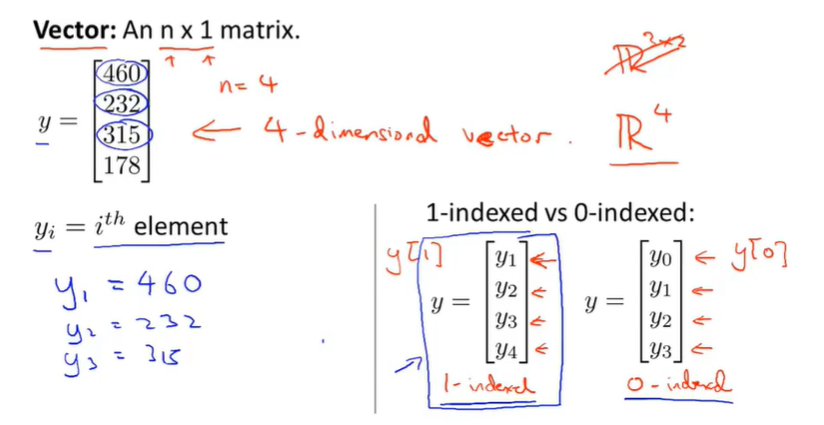 Vector: An n x 1 matrix.
y = [460 232 315 178]
n = 4
← 4-dimensional vector.
ℝ³ˣ²
ℝ⁴
yᵢ = iᵗʰ element
y₁ = 460
y₂ = 232
y₃ = 315
1-indexed vs 0-indexed:
y[1]
y = [y₁ y₂ y₃ y₄]
1-indexed
y[0]
y = [y₀ y₁ y₂ y₃]
0-indexed